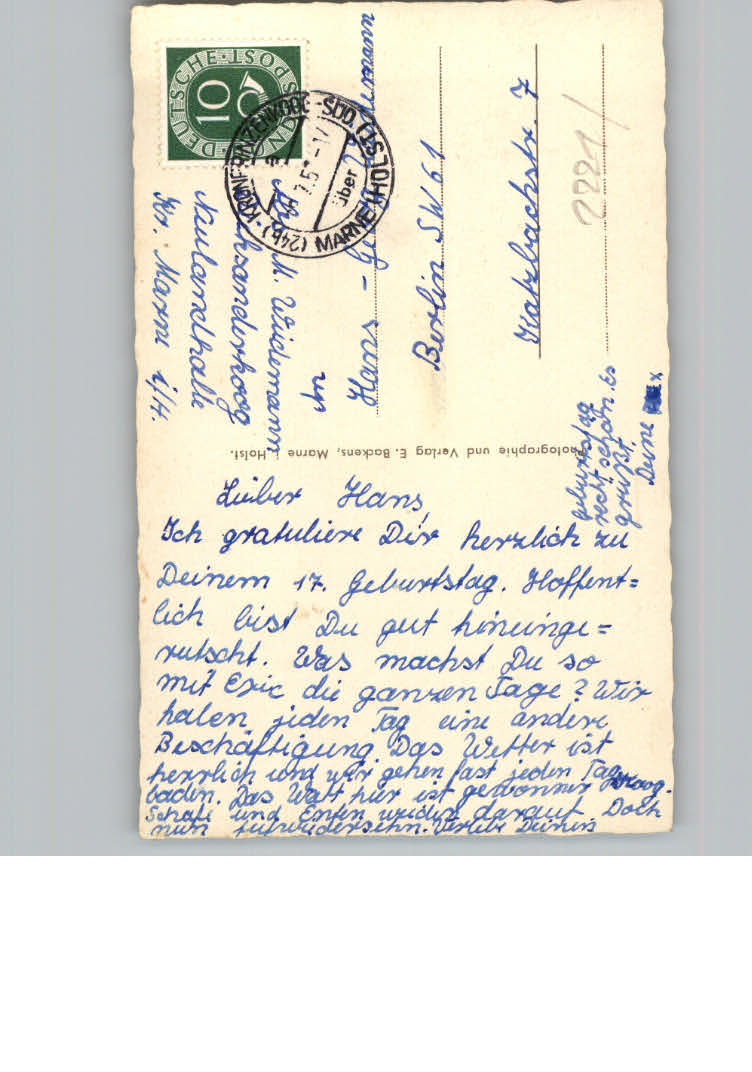 DEUTSCHE·BUNDESPOST
10
(24b) KRONPRINZENKOOG-SÜD (HOLST)
über
MARNE (HOLST)
M. Wiedemann
Neulandhalle
Kr. Marne i/H.
Hans-
Berlin SW 61
Katzbachstr. 7
2221/
Photographie und Verlag E. Backens, Marne i. Holst.
Lieber Hans,
Ich gratuliere Dir herzlich zu
Deinem 17. Geburtstag. Hoffent=
lich bist Du gut hineinge=
rutscht. Was machst Du so
mit Eric die ganzen Tage? Wir
haben jeden Tag eine andere
Beschäftigung Das Wetter ist
herrlich und wir gehen fast jeden Tag
baden. Das Watt hier ist gewonner Koog.
Schafe und Enten weiden darauf. Doch
nun aufwiedersehn. Verlebe Deinen
Geburtstag
recht schön. Es
grüßt.
Deine